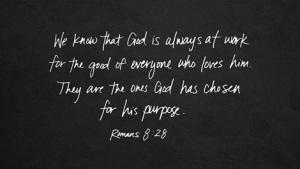 We know that God is always at work
for the good of everyone who loves him.
They are the ones God has chosen
for his purpose.
Romans 8:28